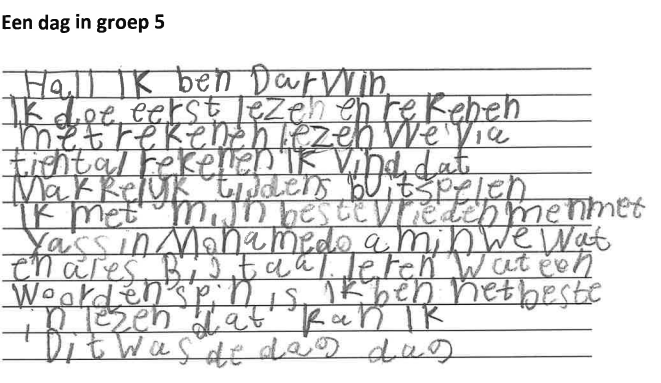 Een dag in groep 5
Hall Ik ben Darwin
Ik doe eerst lezen en rekenen
met rekenen lezen we via
tiental rekenen Ik Vind dat
Makkelijk tijdens buitspelen
Ik met mijn beste vrieden men met
Yassin Mohamed amin we wat
en Bij taal leren wat een
woordenspin is Ik ben het beste
in lezen dat kan Ik
Dit was de dag dag